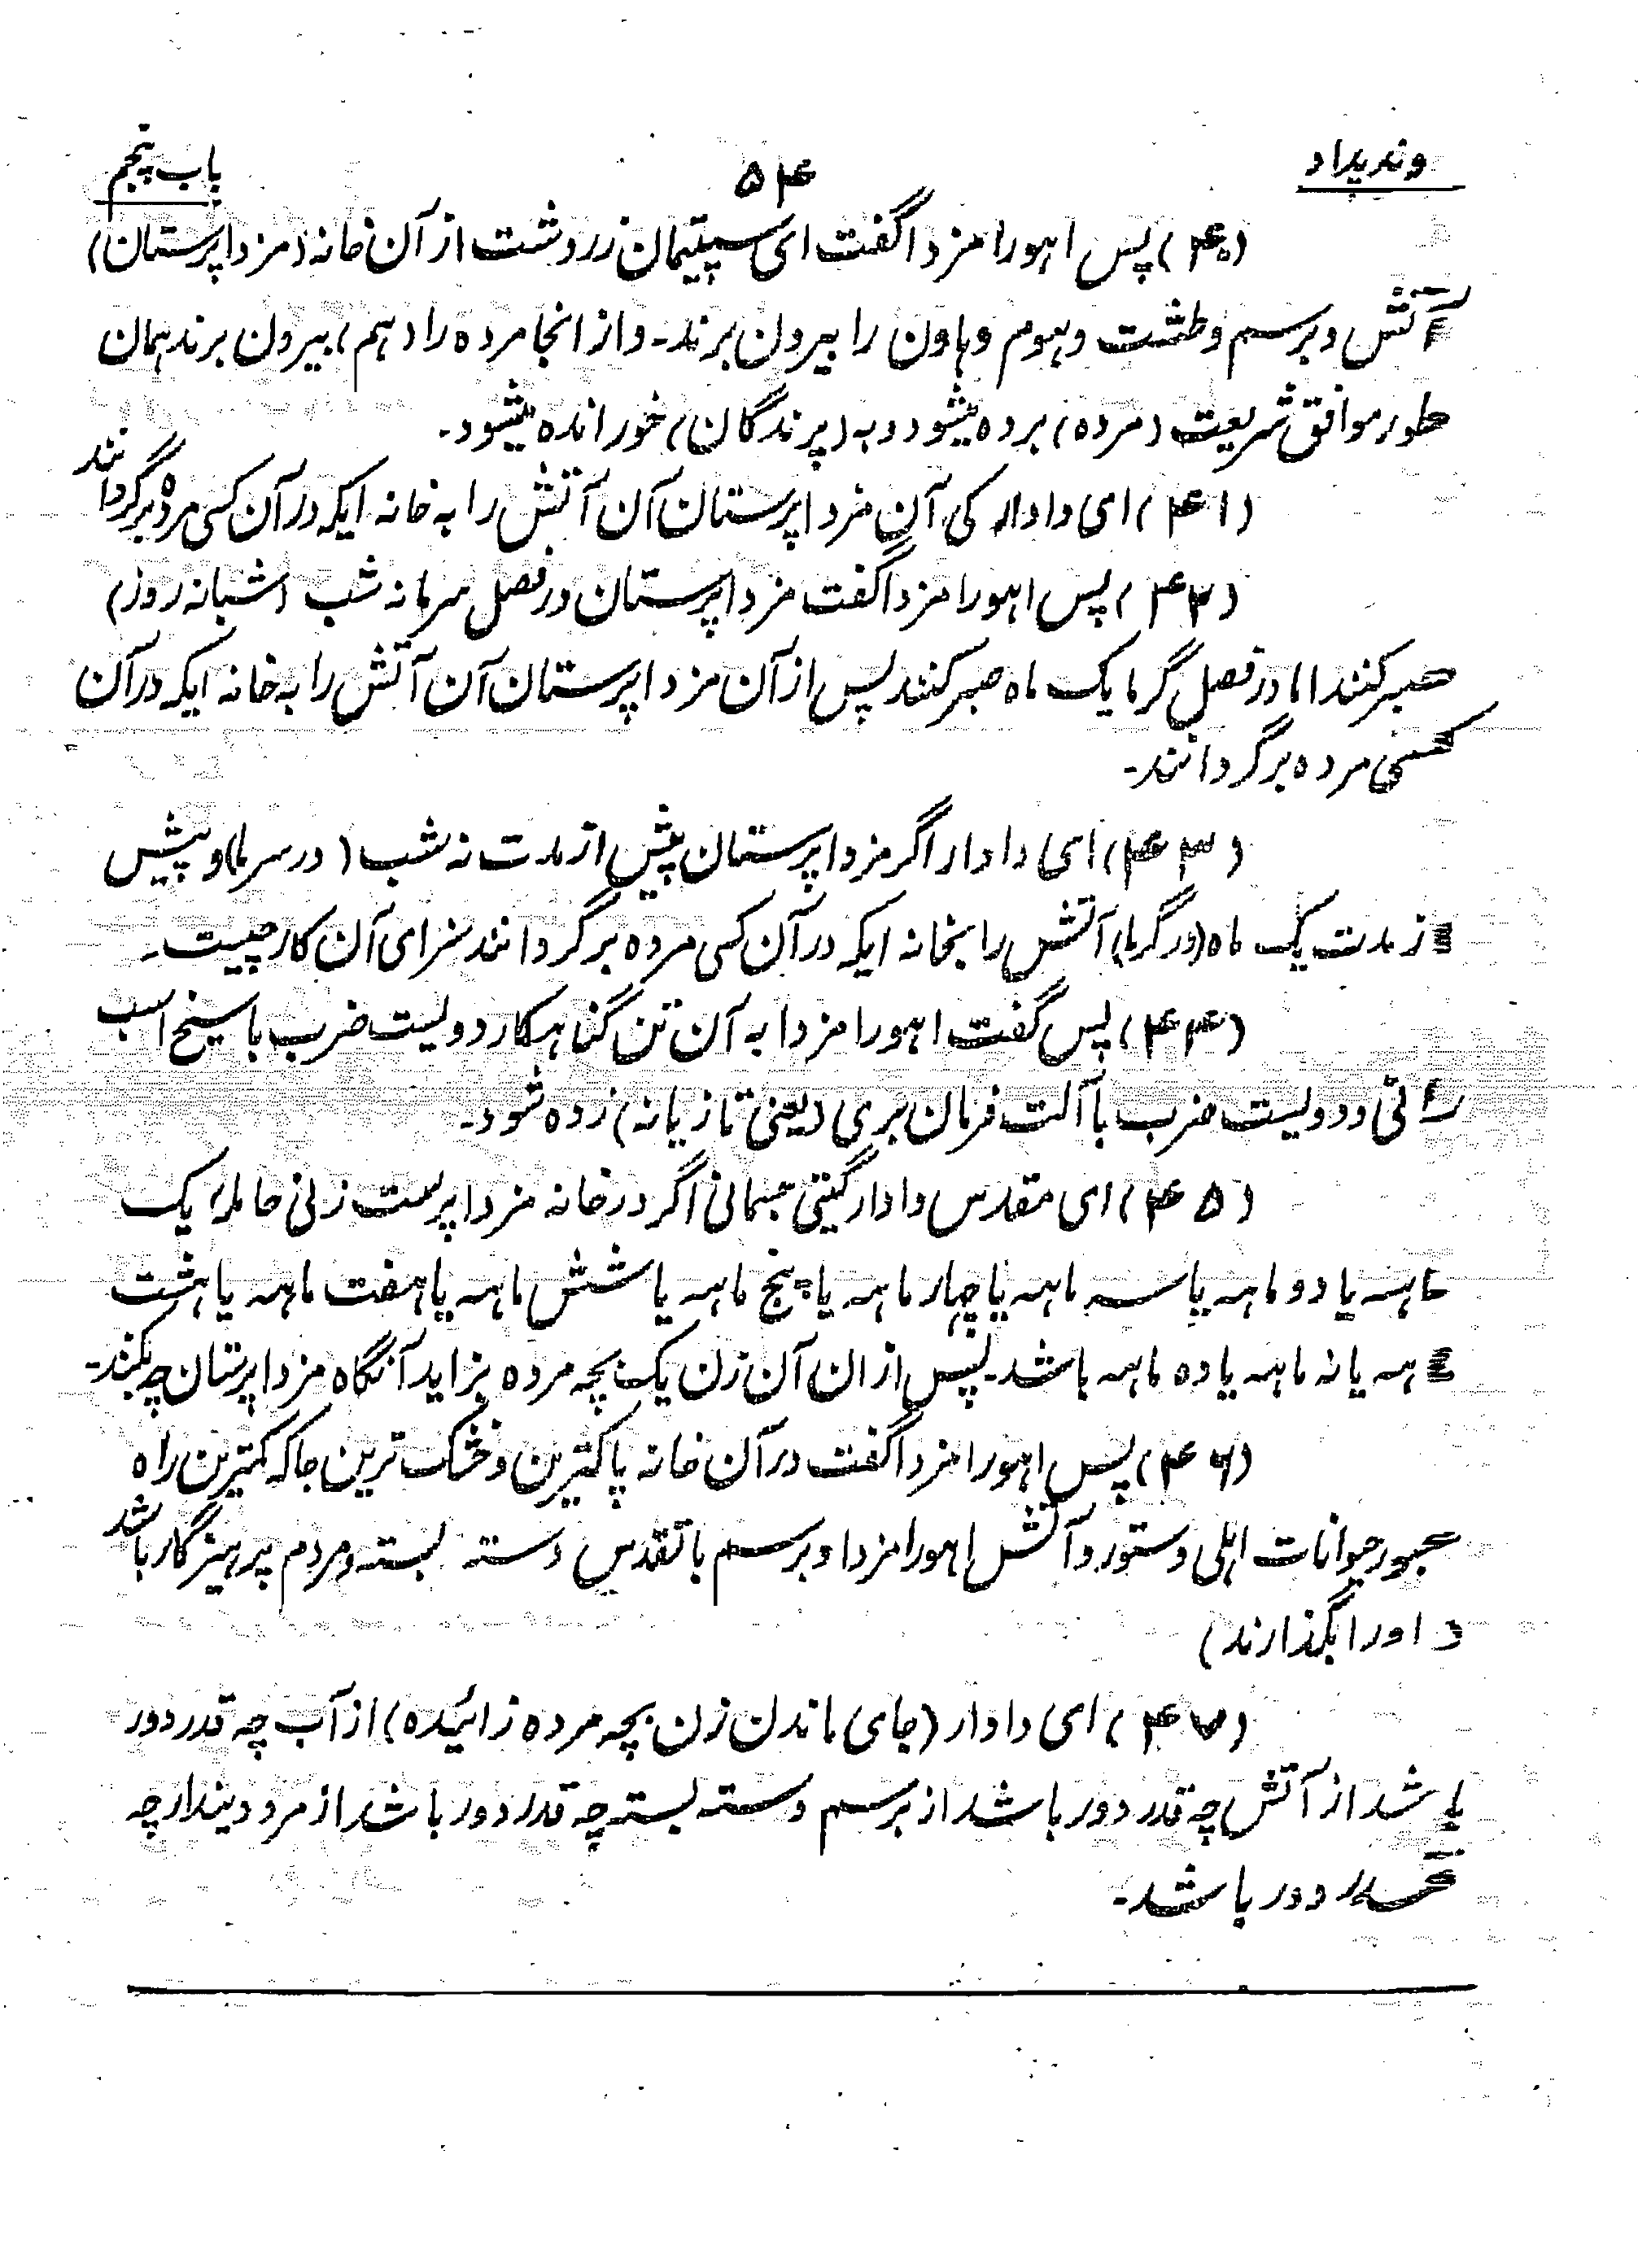 وندیداد
۵۴
باب پنجم
(۴۰) پس اهورا مزدا گفت ای سپیتمان زردوشت از آن خانه (مزدا پرستان)
آتش و برسم و طشت و هوم و هاون را بیرون برند۔ و از انجا مرده را (هم) بیرون برند همان
طور موافق شریعت (مرده) برده میشود و به (پرندگان) خورانده میشود۔
(۴۱) ای دادار کی آن مزدا پرستان آن آتش را به خانه ایکه در آن کسی مرده برگردانند
(۴۲) پس اهورا مزدا گفت مزدا پرستان در فصل سرما نه شب (شبانه روز)
صبر کنند اما در فصل گرما یک ماه صبر کنند پس از آن مزدا پرستان آن آتش را به خانه ایکه در آن
کسی مرده برگردانند۔
(۴۳) ای دادار اگر مزدا پرستان پیش از مدت نه شب (در سرما) و پیش
از مدت یک ماه (در گرما) آتش را بخانه ایکه در آن کسی مرده برگردانند سزای آن کار چیست۔
(۴۴) پس گفت اهورا مزدا به آن تن گناهکار دویست ضرب با سیخ اسب
رانی و دویست ضرب با آلت فرمان بری (یعنی تازیانه) زده شود۔
(۴۵) ای مقدس دادار گیتی جسمانی اگر در خانه مزدا پرست زنی حامله یک
ماهه یا دو ماهه یا سه ماهه یا چهار ماهه یا پنج ماهه یا شش ماهه یا هفت ماهه یا هشت
ماهه یا نه ماهه یا ده ماهه باشد۔ پس از ان آن زن یک بچه مرده بزاید آنگاه مزدا پرستان چه بکند۔
(۴۶) پس اهورا مزدا گفت در آن خانه پاکترین و خشک ترین جا که کمترین راه
عبور حیوانات اهلی و ستور و آتش اهورا مزدا و برسم با تقدس دسته بسته و مردم پرهیزگار باشد
(او را بگذارند)
(۴۷) ای دادار (جای ماندن زن بچه مرده زائیده) از آب چه قدر دور
باشد از آتش چه قدر دور باشد از برسم دسته بسته چه قدر دور باشد از مرد دیندار چه
قدر دور باشد۔